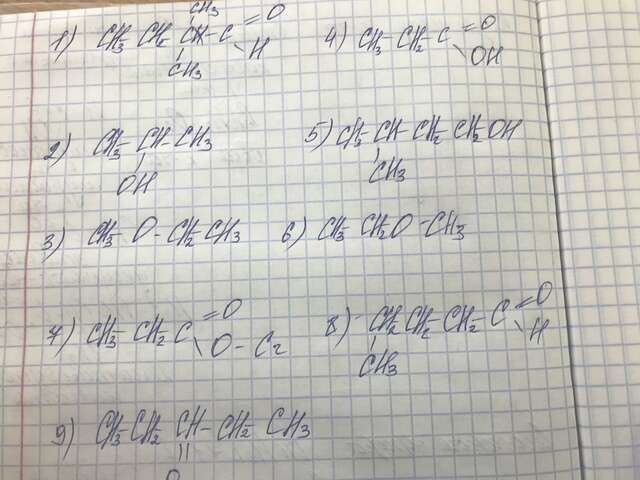 CH3
1) CH3 CH2 CH - C = O
CH3 H
4) CH3 CH2 C = O
OH
2) CH3 CH CH3
OH
5) CH3 CH CH2 CH2OH
CH3
3) CH3 - O - CH2 - CH3
6) CH3 CH2 O - CH3
7) CH3 - CH2 C = O
O - C2
8) CH2 CH2 CH2 C = O
CH3 H
9) CH3 CH2 CH - CH2 CH3
O